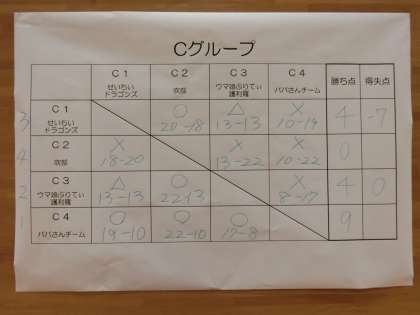 Cグループ
C1 C2 C3 C4 勝ち点 得失点
せいちい ドラゴンズ 吹部 ウマ娘ぷりてぃ 護利権 パパさんチーム
3 C1 せいちい ドラゴンズ ○ 20-18 △ 13-13 × 10-19 4 -7
4 C2 吹部 × 18-20 × 13-22 × 10-22 0
2 C3 ウマ娘ぷりてぃ 護利権 △ 13-13 ○ 22-13 × 8-17 4 0
1 C4 パパさんチーム ○ 19-10 ○ 22-10 ○ 17-8 9